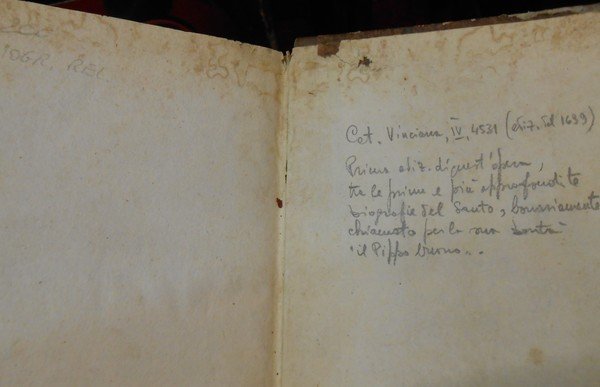 IOGR. REL.
Cat. Vinciana, IV, 4531 (ediz. del 1699)
Prima ediz. di quest'opera,
tra le prime e più approfondite
biografie del Santo, bonariamente
chiamato per la sua bontà
"il Pippo buono".